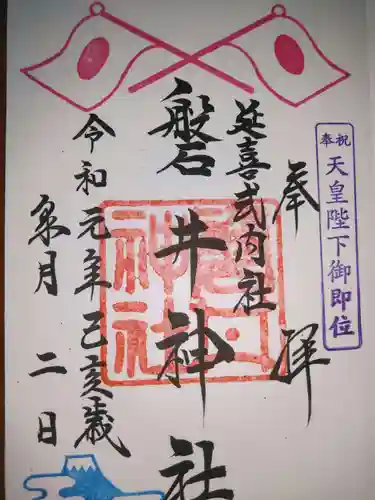 奉拝
祝奉
天皇陛下御即位
延喜式内社
磐井神社
令和元年己亥歳
泉月二日